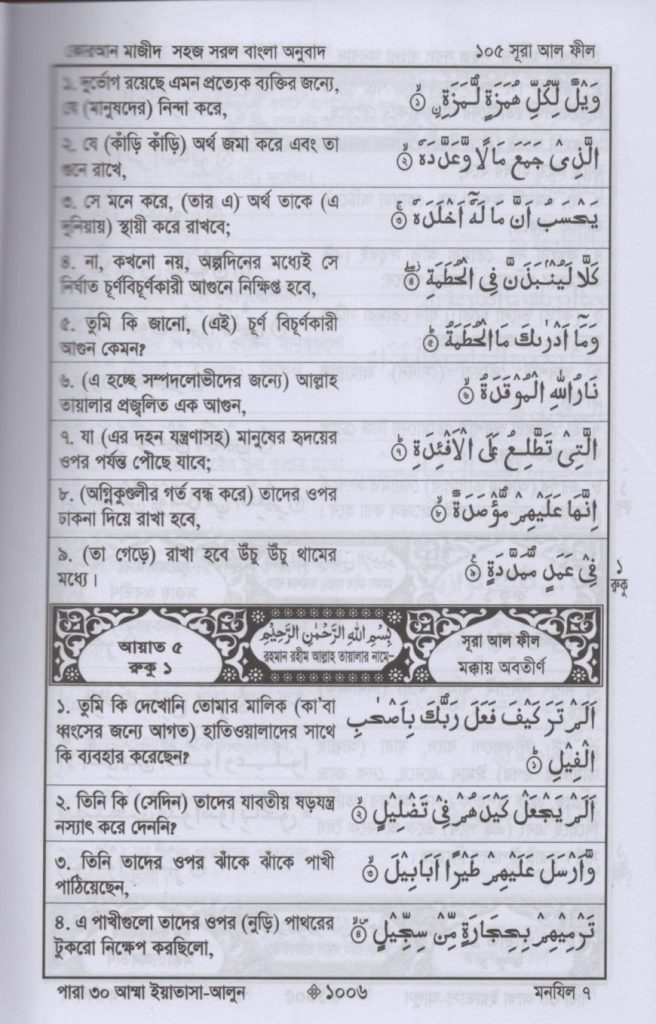 কোরআন মাজীদ সহজ সরল বাংলা অনুবাদ
১০৫ সূরা আল ফীল
১. দুর্ভোগ রয়েছে এমন প্রত্যেক ব্যক্তির জন্যে,
যে (মানুষদের) নিন্দা করে,
وَيْلٌ لِّكُلِّ هُمَزَةٍ لُّمَزَةِ ۙ ۝١
২. যে (কাঁড়ি কাঁড়ি) অর্থ জমা করে এবং তা
গুনে রাখে,
الَّذِىْ جَمَعَ مَالًا وَّعَدَّدَهٗ ۙ ۝٢
৩. সে মনে করে, (তার এ) অর্থ তাকে (এ
দুনিয়ায়) স্থায়ী করে রাখবে;
يَحْسَبُ اَنَّ مَالَهٗٓ اَخْلَدَهٗ ۚ ۝٣
৪. না, কখনো নয়, অল্পদিনের মধ্যেই সে
নির্ঘাত চূর্ণবিচূর্ণকারী আগুনে নিক্ষিপ্ত হবে,
كَلَّا لَيُنْۢبَذَنَّ فِى الْحُطَمَةِ ۖ ۝٤
৫. তুমি কি জানো, (এই) চূর্ণ বিচূর্ণকারী
আগুন কেমন?
وَمَآ اَدْرٰىكَ مَا الْحُطَمَةُ ؕ ۝٥
৬. (এ হচ্ছে সম্পদলোভীদের জন্যে) আল্লাহ
তায়ালার প্রজ্বলিত এক আগুন,
نَارُ اللّٰهِ الْمُوْقَدَةُ ۙ ۝٦
৭. যা (এর দহন যন্ত্রণাসহ) মানুষের হৃদয়ের
ওপর পর্যন্ত পৌঁছে যাবে;
الَّتِىْ تَطَّلِعُ عَلَى الْاَفْئِدَةِ ؕ ۝٧
৮. (অগ্নিকুণ্ডলীর গর্ত বন্ধ করে) তাদের ওপর
ঢাকনা দিয়ে রাখা হবে,
اِنَّهَا عَلَيْهِمْ مُّؤْصَدَةٌ ۙ ۝٨
৯. (তা গেড়ে) রাখা হবে উঁচু উঁচু থামের
মধ্যে।
فِىْ عَمَدٍ مُّمَدَّدَةٍ ۝٩
১
রুকু
আয়াত ৫
রুকু ১
بِسْمِ اللهِ الرَّحْمٰنِ الرَّحِيْمِ
রহমান রহীম আল্লাহ তায়ালার নামে-
সূরা আল ফীল
মক্কায় অবতীর্ণ
১. তুমি কি দেখোনি তোমার মালিক (কা'বা
ধ্বংসের জন্যে আগত) হাতিওয়ালাদের সাথে
কি ব্যবহার করেছেন?
اَلَمْ تَرَ كَيْفَ فَعَلَ رَبُّكَ بِاَصْحٰبِ
الْفِيْلِ ؕ ۝١
২. তিনি কি (সেদিন) তাদের যাবতীয় ষড়যন্ত্র
নস্যাৎ করে দেননি?
اَلَمْ يَجْعَلْ كَيْدَهُمْ فِىْ تَضْلِيْلٍ ۙ ۝٢
৩. তিনি তাদের ওপর ঝাঁকে ঝাঁকে পাখী
পাঠিয়েছেন,
وَّاَرْسَلَ عَلَيْهِمْ طَيْرًا اَبَابِيْلَ ۙ ۝٣
৪. এ পাখীগুলো তাদের ওপর (নুড়ি) পাথরের
টুকরো নিক্ষেপ করছিলো,
تَرْمِيْهِمْ بِحِجَارَةٍ مِّنْ سِجِّيْلٍ ۙ ۝٤
পারা ৩০ আম্মা ইয়াতাসা-আলুন
১০০৬
মনযিল ৭